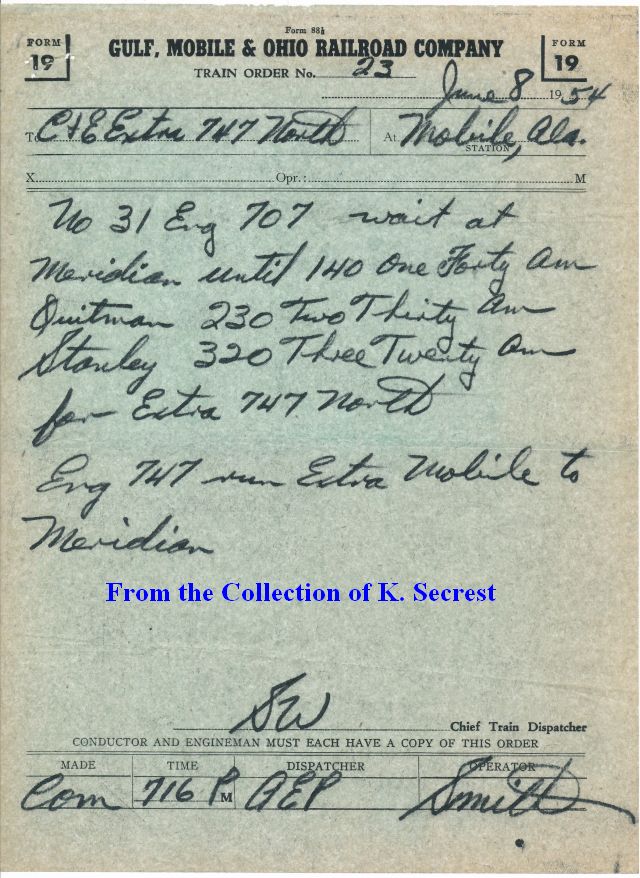 Form 88½
FORM 19
GULF, MOBILE & OHIO RAILROAD COMPANY
FORM 19
TRAIN ORDER No. 23
June 8 1954
To C&E Extra 747 North At Mobile, Ala.
STATION
X Opr.: M
No 31 Eng 707 wait at
Meridian until 140 One Forty Am
Quitman 230 Two Thirty Am
Stanley 320 Three Twenty Am
for Extra 747 North
Eng 747 run Extra Mobile to
Meridian
From the Collection of K. Secrest
SW
Chief Train Dispatcher
CONDUCTOR AND ENGINEMAN MUST EACH HAVE A COPY OF THIS ORDER
MADE TIME DISPATCHER OPERATOR
Com 716 P M AEP Smith